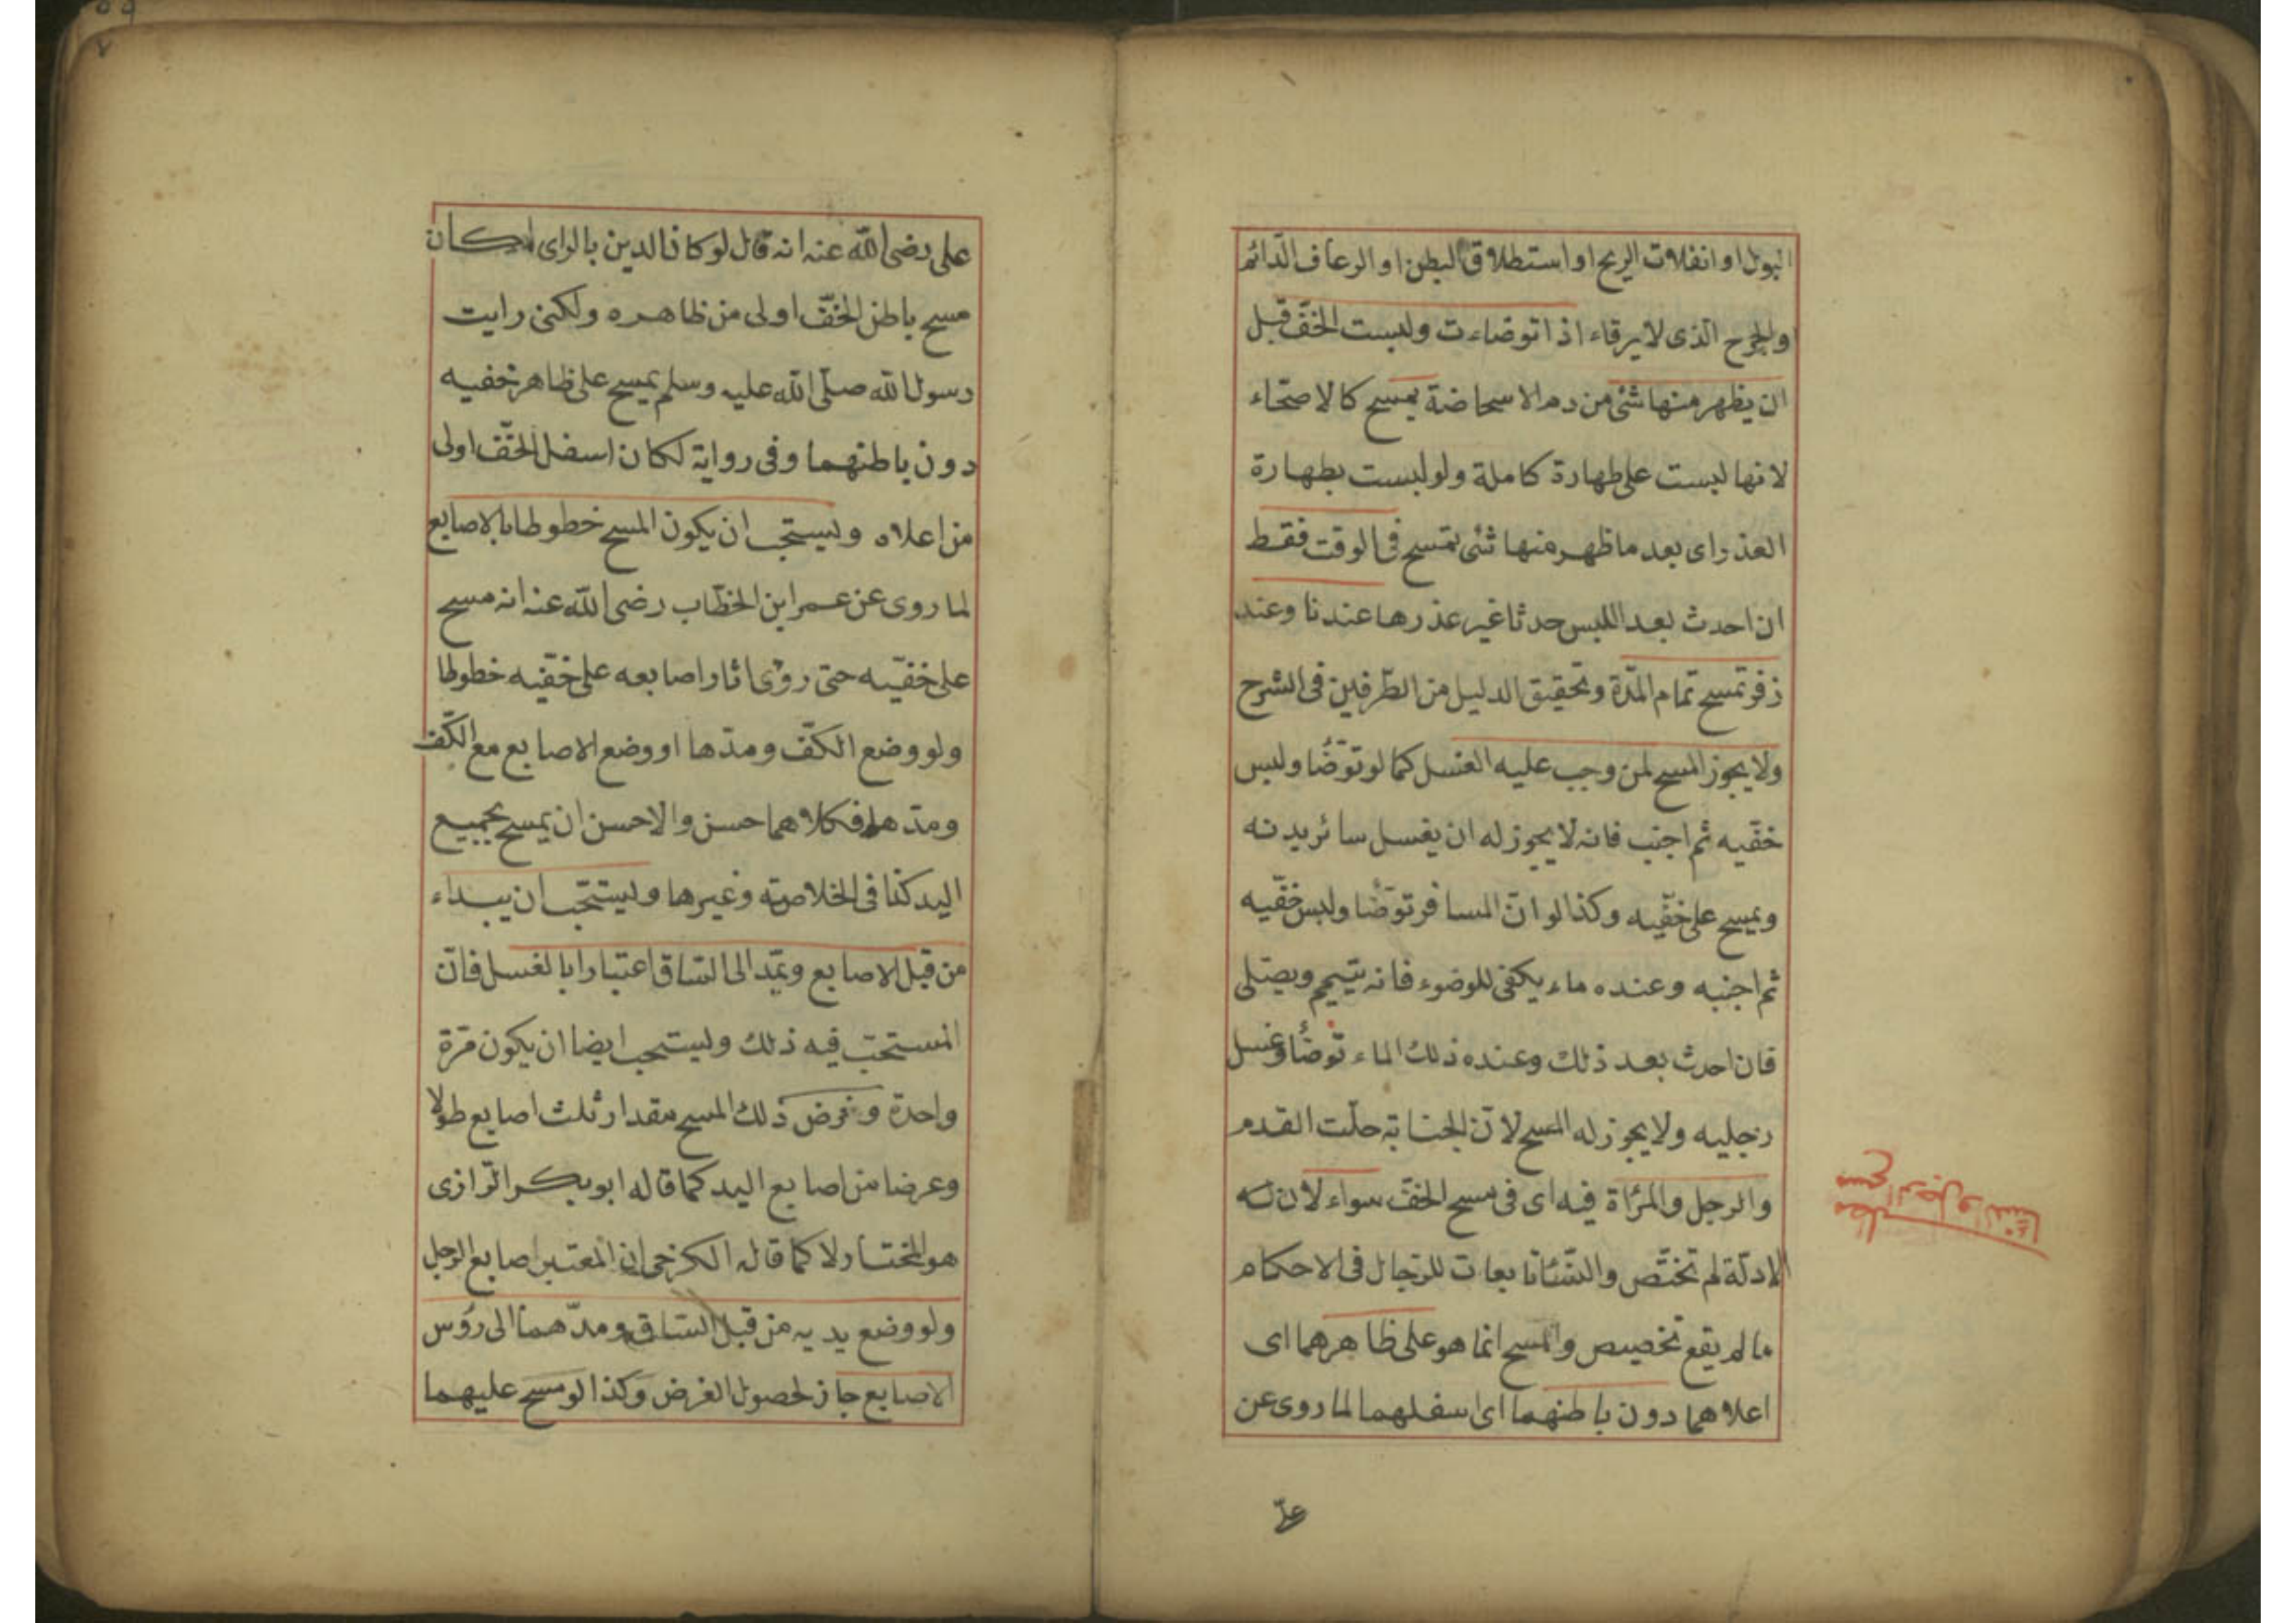 البول او انفلات الريح او استطلاق البطن او الرعاف الدّائم
والجرح الّذى لا يرقاء اذا توضاءت ولبست الخفّ قبل
ان يظهر منها شئ من دم الاسحاضة يمسح كالاصحّاء
لانها لبست على طهارة كاملة ولو لبست بطهارة
العذر اى بعد ما ظهر منها شئ تمسح فى الوقت فقط
ان احدث بعد اللبس حدثا غير عذرها عندنا وعند
زفر تمسح تمام المدّة وتحقيق الدليل من الطّرفين فى الشرح
ولا يجوز المسح لمن وجب عليه الغسل كما لو توضّأ ولبس
خفّيه ثم اجنب فانه لا يجوز له ان يغسل سائر بدنه
ويمسح على خفّيه وكذا لو انّ المسافر توضّأ ولبس خفّيه
ثم اجنبه وعنده ماء يكفى للوضوء فانه يتيمم ويصلّى
فان احدث بعد ذلك وعنده ذلك الماء توضّأ وغسل
رجليه ولا يجوز له المسح لانّ الجنابة حلّت القدم
والرجل والمرأة فيه اى فى مسح الخفّ سواء لان
الادلّة لم تختّص والنّساء تابعات للرّجال فى الاحكام
ما لم يقع تخصيص والمسح انما هو على ظاهرهما اى
اعلاهما دون باطنهما اى اسفلهما لما روى عن
مسح الرجل والنساء
على رضى اللّه عنه انه قال لو كان الدين بالراى لكان
مسح باطن الخفّ اولى من ظاهره ولكنى رايت
رسول اللّه صلّى اللّه عليه وسلم يمسح على ظاهر خفيه
دون باطنهما وفى رواية لكان اسفل الخفّ اولى
من اعلاه ويستحب ان يكون المسح خطوطا بالاصابع
لما روى عن عمر ابن الخطّاب رضى اللّه عنه انه مسح
على خفّيه حتى رؤى اثار اصابعه على خفّيه خطوطا
ولو وضع الكفّ ومدّها او وضع الاصابع مع الكفّ
ومدّها فكلاهما حسن والاحسن ان يمسح بجميع
اليد كذا فى الخلاصة وغيرها ويستحّب ان يبداء
من قبل الاصابع ويمّد الى السّاق اعتبارا بالغسل فانّ
المستحبّ فيه ذلك ويستحب ايضا ان يكون مرّة
واحدة وفرض ذلك المسح مقدار ثلث اصابع طولا
وعرضا من اصابع اليد كما قاله ابو بكر الرّازى
هو المختار لا كما قاله الكرخى ان المعتبر اصابع الرجل
ولو وضع يديه من قبل السّاق ومدّهما الى رؤس
الاصابع جاز لحصول الفرض وكذا لو مسح عليهما